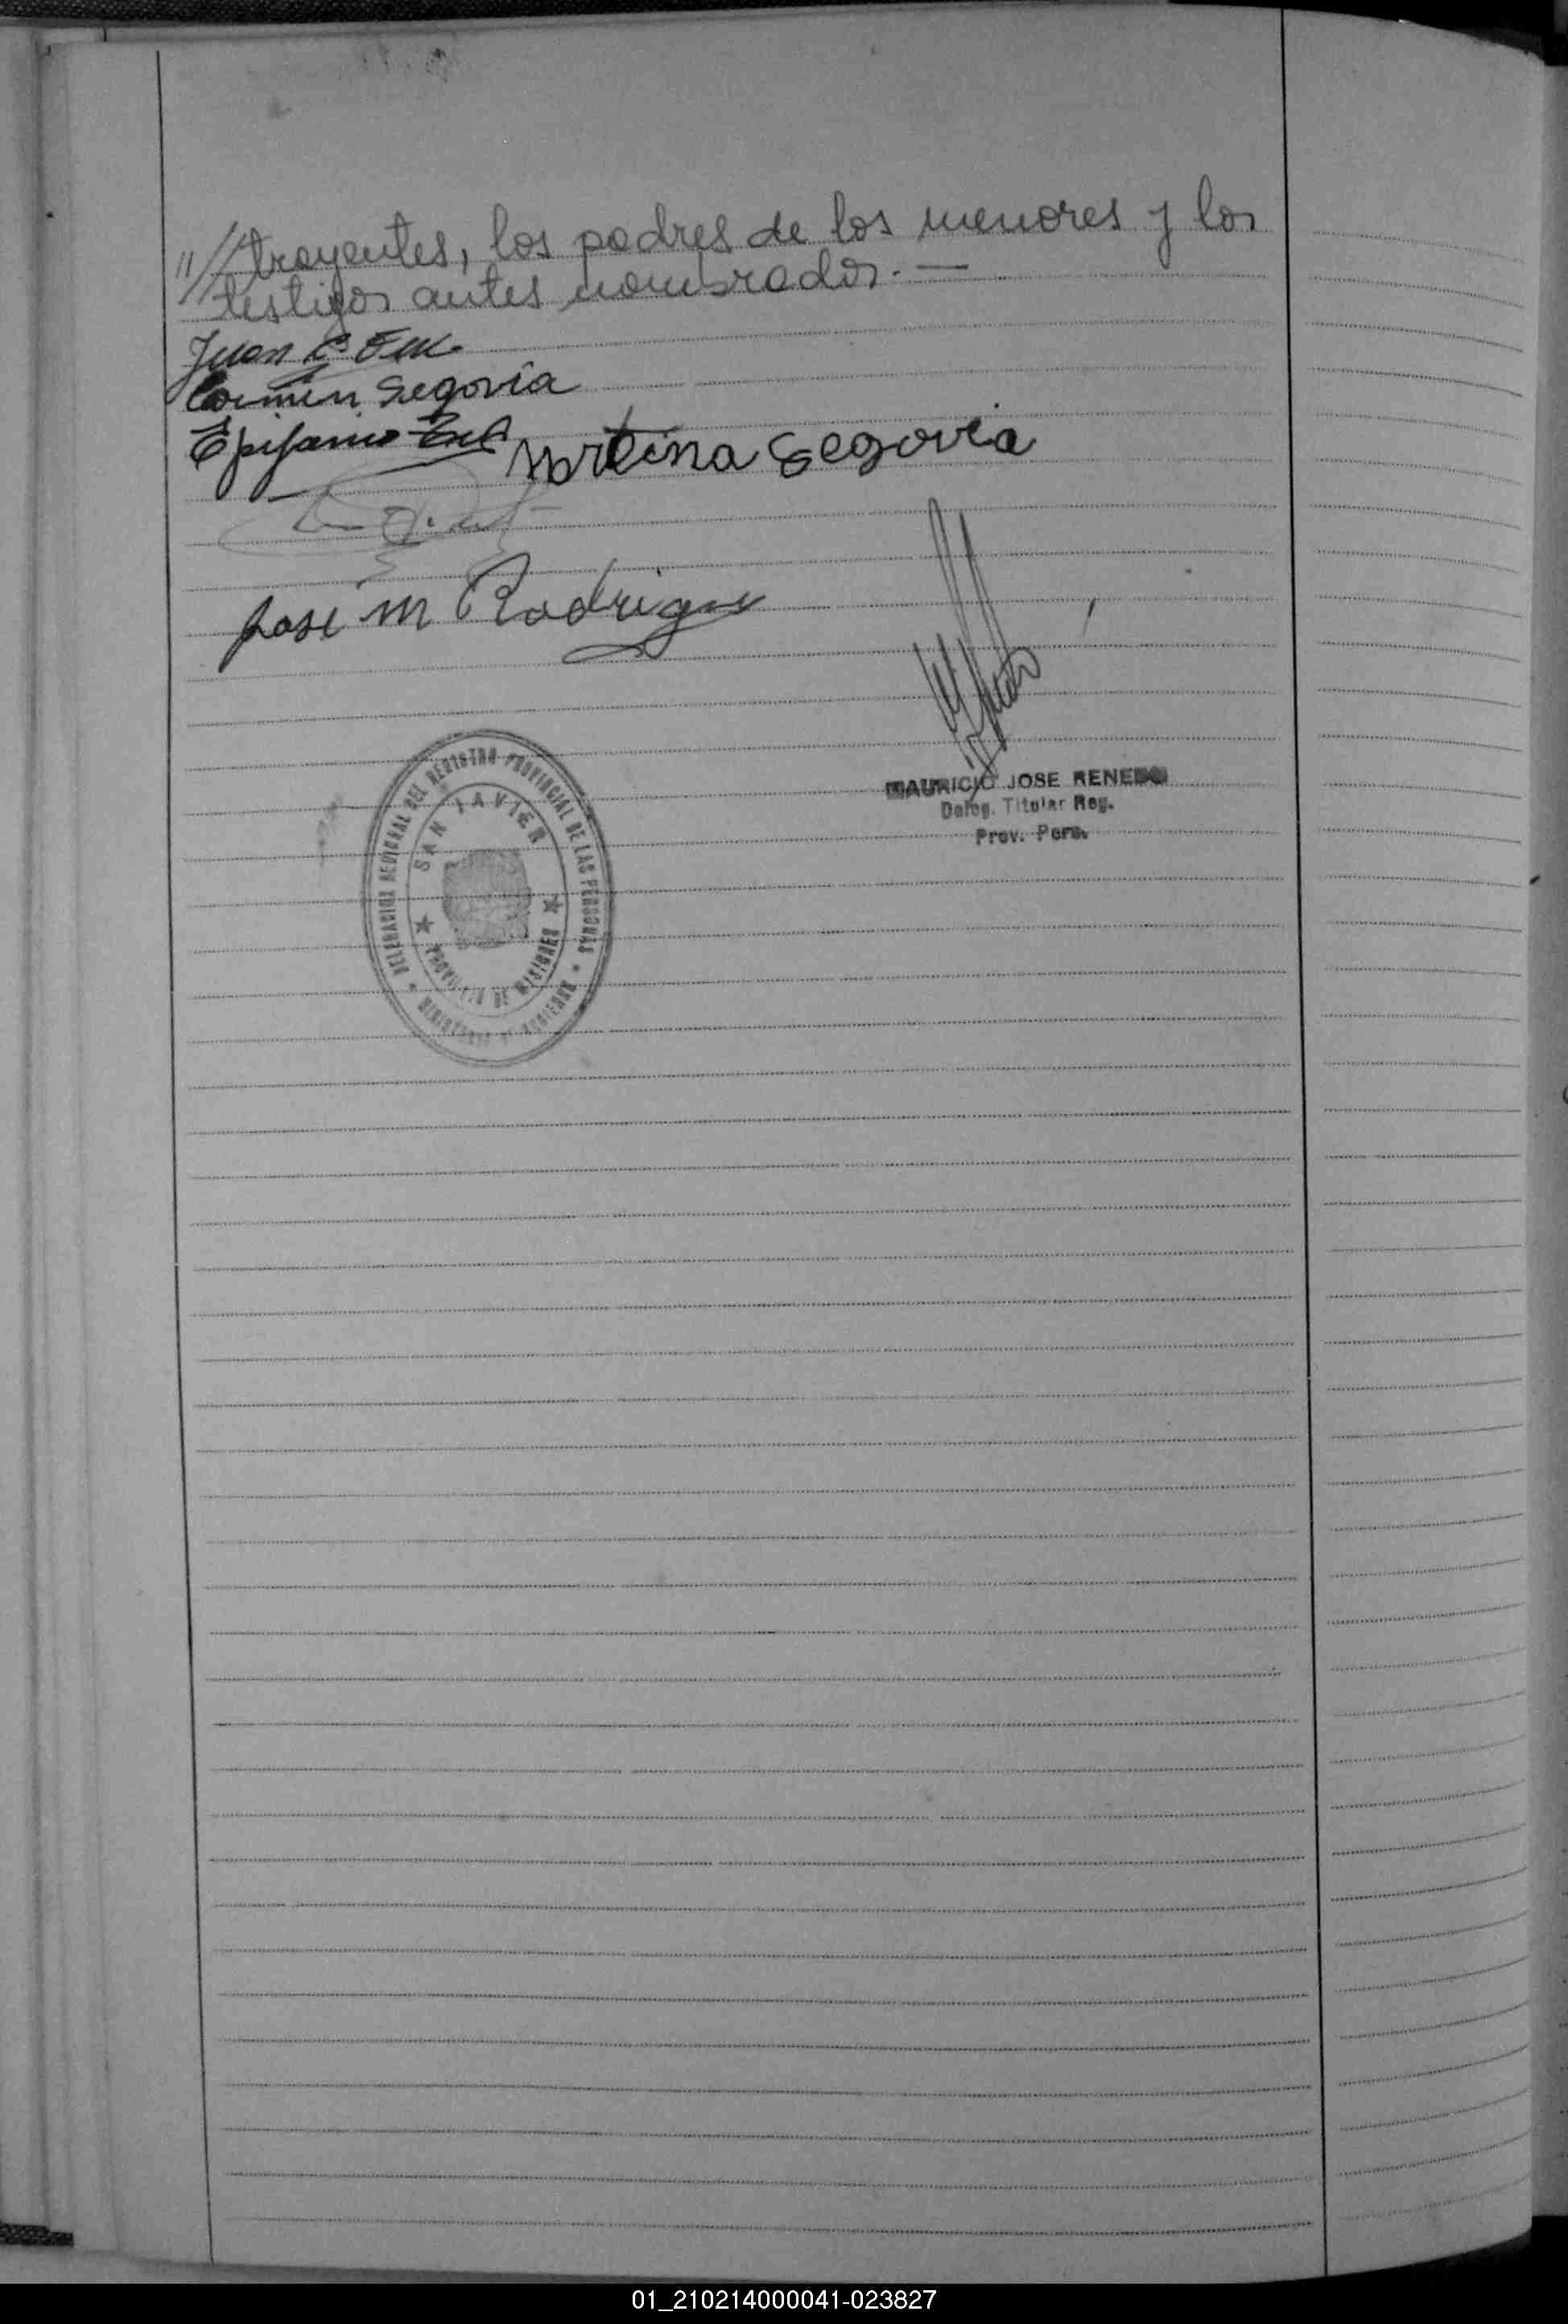 "//trayentes, los padres de los menores y los
testigos antes nombrados.—
Juan
Carmen Segovia
Epifanio
Martina Segovia
Jose M Rodrigues
MAURICIO JOSE RENEDO
Deleg. Titular Reg.
Prov. Pers.
DELEGACION REGIONAL DEL REGISTRO PROVINCIAL DE LAS PERSONAS
SAN JAVIER
★ PROVINCIA DE MISIONES ★
★ MINISTERIO DE GOBIERNO ★
01_210214000041-023827